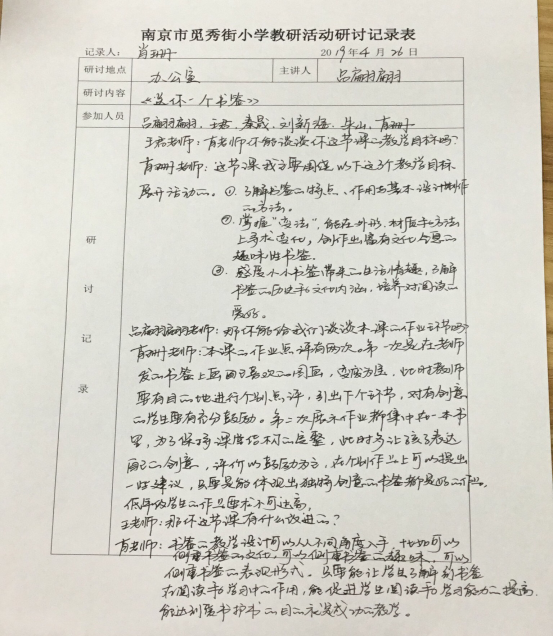 南京市觅秀街小学教研活动研讨记录表
记录人： 肖珊珊 2019年 4月 26日
研讨地点 办公室 主讲人 吕扁羽扁羽
研讨内容 《送你一个书签》
参加人员 吕扁羽扁羽、王君、秦晟、刘新
研讨记录
王君老师：肖老师你能谈谈你这节课的教学目标吗？
肖珊老师：这节课我主要围绕以下这3个教学目标
展开活动的。①了解书签的特点、作用与基本设计制作
的方法。
②掌握"变法"，能在外形、材质和方法
上寻求变化，创作出富有文化含意的
趣味性书签。
③感受小小书签带来的生活情趣，了解
书签的历史和文化内涵，培养对阅读的
爱好。
吕扁羽扁羽老师：那你能给我们谈谈本课的作业环节吗？
肖珊老师：本课的作业点评有两次。第一次是在老师
发的书签上画自己喜欢的图画，变废为宝，此时教师
要有目的地进行个别点评，引出下个环节，对有创意
的学生要有充分鼓励。第二次展示作业都集中在一本书
里，为了保持课堂结构的完整，此时多让孩子表达
自己的创意，评价以鼓励为主，在个别作业上可以提出
一些建议，只要是能体现出独特创意的书签都是好的作业。
低年级学生的作业要求不可过高。
王老师：那你这节课有什么改进的？
肖老师：书签的教学设计可以从不同角度入手，比如可以
侧重书签的文化，可以侧重书签的趣味，可以
侧重书签的表现形式。只要能让学生了解到书签
在阅读和学习中的作用，能促进学生阅读和学习能力的提高，
能达到爱书护书的目的就是成功的教学。